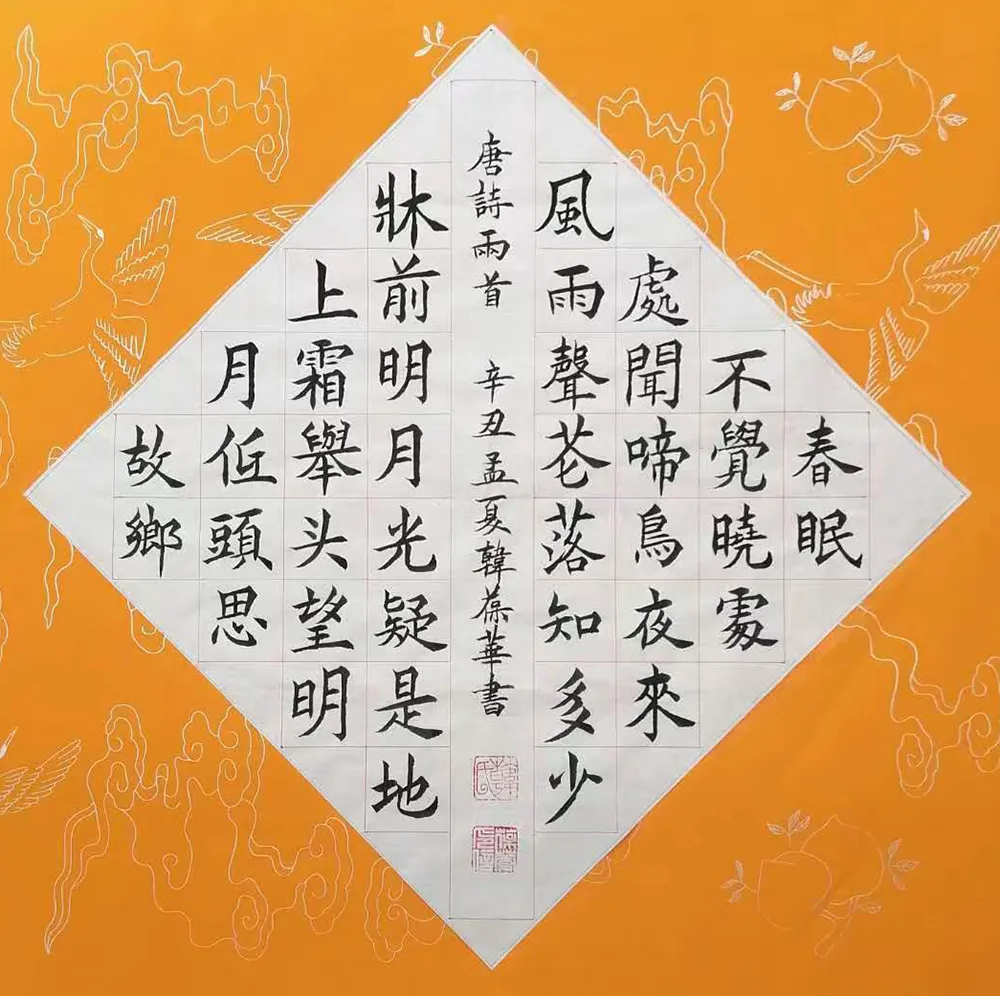 春眠
不覺曉處
處聞啼鳥夜來
風雨聲花落知多少
唐詩兩首 辛丑孟夏韓葆華書
牀前明月光疑是地
上霜舉头望明
月低頭思
故鄉